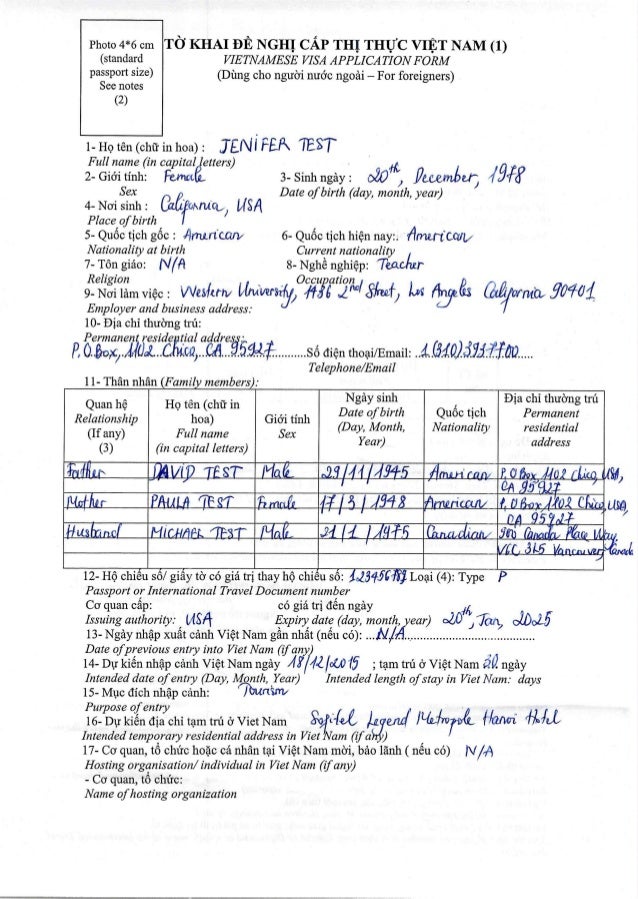 Photo 4*6 cm
(standard
passport size)
See notes
(2)
TỜ KHAI ĐỀ NGHỊ CẤP THỊ THỰC VIỆT NAM (1)
VIETNAMESE VISA APPLICATION FORM
(Dùng cho người nước ngoài – For foreigners)
1- Họ tên (chữ in hoa) : JENIFER TEST
Full name (in capital letters)
2- Giới tính: Female 3- Sinh ngày : 20th, December, 1978
Sex Date of birth (day, month, year)
4- Nơi sinh : California, USA
Place of birth
5- Quốc tịch gốc : American 6- Quốc tịch hiện nay:. American
Nationality at birth Current nationality
7- Tôn giáo: N/A 8- Nghề nghiệp: Teacher
Religion Occupation
9- Nơi làm việc : Western University, 1436 2nd Street, Los Angeles California 90401
Employer and business address:
10- Địa chỉ thường trú:
Permanent residential address:
P.O Box, 1102 Chico, CA 95927 Số điện thoại/Email: 1(310)3917700
Telephone/Email
11- Thân nhân (Family members):
Quan hệ Relationship (If any) (3) Họ tên (chữ in hoa) Full name (in capital letters) Giới tính Sex Ngày sinh Date of birth (Day, Month, Year) Quốc tịch Nationality Địa chỉ thường trú Permanent residential address
Father DAVID TEST Male 29/11/1945 American P.O Box 1102 Chico, USA, CA 95927
Mother PAULA TEST Female 17/3/1948 American P.O Box 1102 Chico, USA, CA 95927
Husband MICHAEL TEST Male 21/1/1975 Canadian 900 Canada Place Way, V6C 3L5 Vancouver, Canada
12- Hộ chiếu số/ giấy tờ có giá trị thay hộ chiếu số: 123456789 Loại (4): Type P
Passport or International Travel Document number
Cơ quan cấp: có giá trị đến ngày
Issuing authority: USA Expiry date (day, month, year) 20th, Jan, 2025
13- Ngày nhập xuất cảnh Việt Nam gần nhất (nếu có): ...N/A
Date of previous entry into Viet Nam (if any)
14- Dự kiến nhập cảnh Việt Nam ngày 18/12/2015 ; tạm trú ở Việt Nam 20 ngày
Intended date of entry (Day, Month, Year) Intended length of stay in Viet Nam: days
15- Mục đích nhập cảnh: Tourism
Purpose of entry
16- Dự kiến địa chỉ tạm trú ở Viet Nam Sofitel Legend Metropole Hanoi Hotel
Intended temporary residential address in Viet Nam (if any)
17- Cơ quan, tổ chức hoặc cá nhân tại Việt Nam mời, bảo lãnh ( nếu có) N/A
Hosting organisation/ individual in Viet Nam (if any)
- Cơ quan, tổ chức:
Name of hosting organization